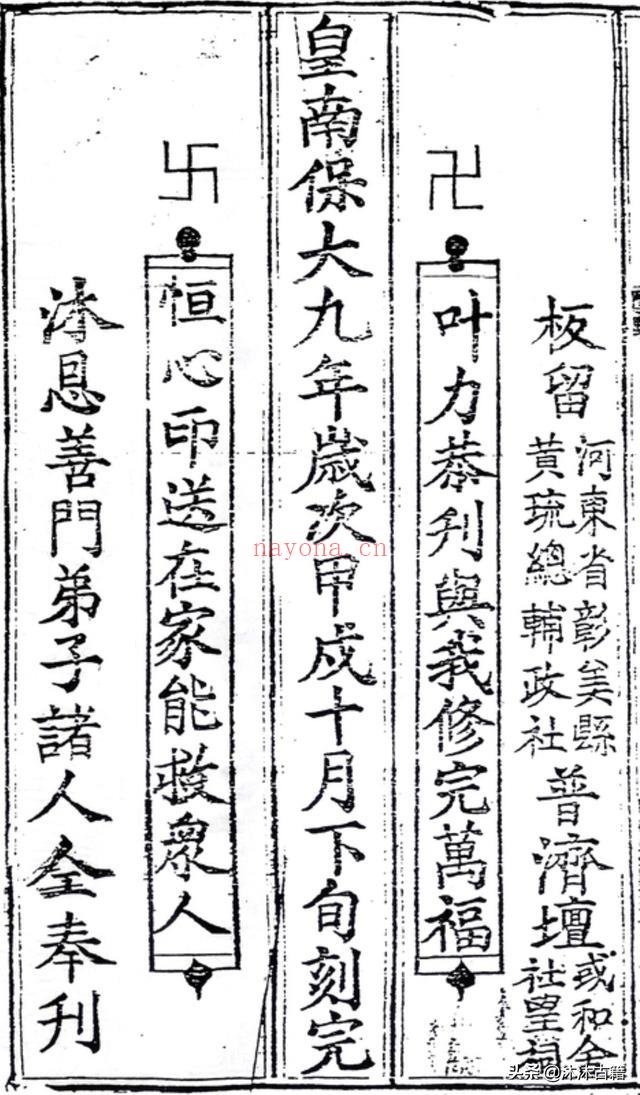 板留
河東省彰美縣
黃琉總輔政社
普濟壇
或和舍
社望祠
卍
叶力恭刊與我修完萬福
皇南保大九年歲次甲戌十月下旬刻完
卐
恒心印送在家能救衆人
沐恩善門弟子諸人全奉刊
nayona.cn
头条@沐沐古籍